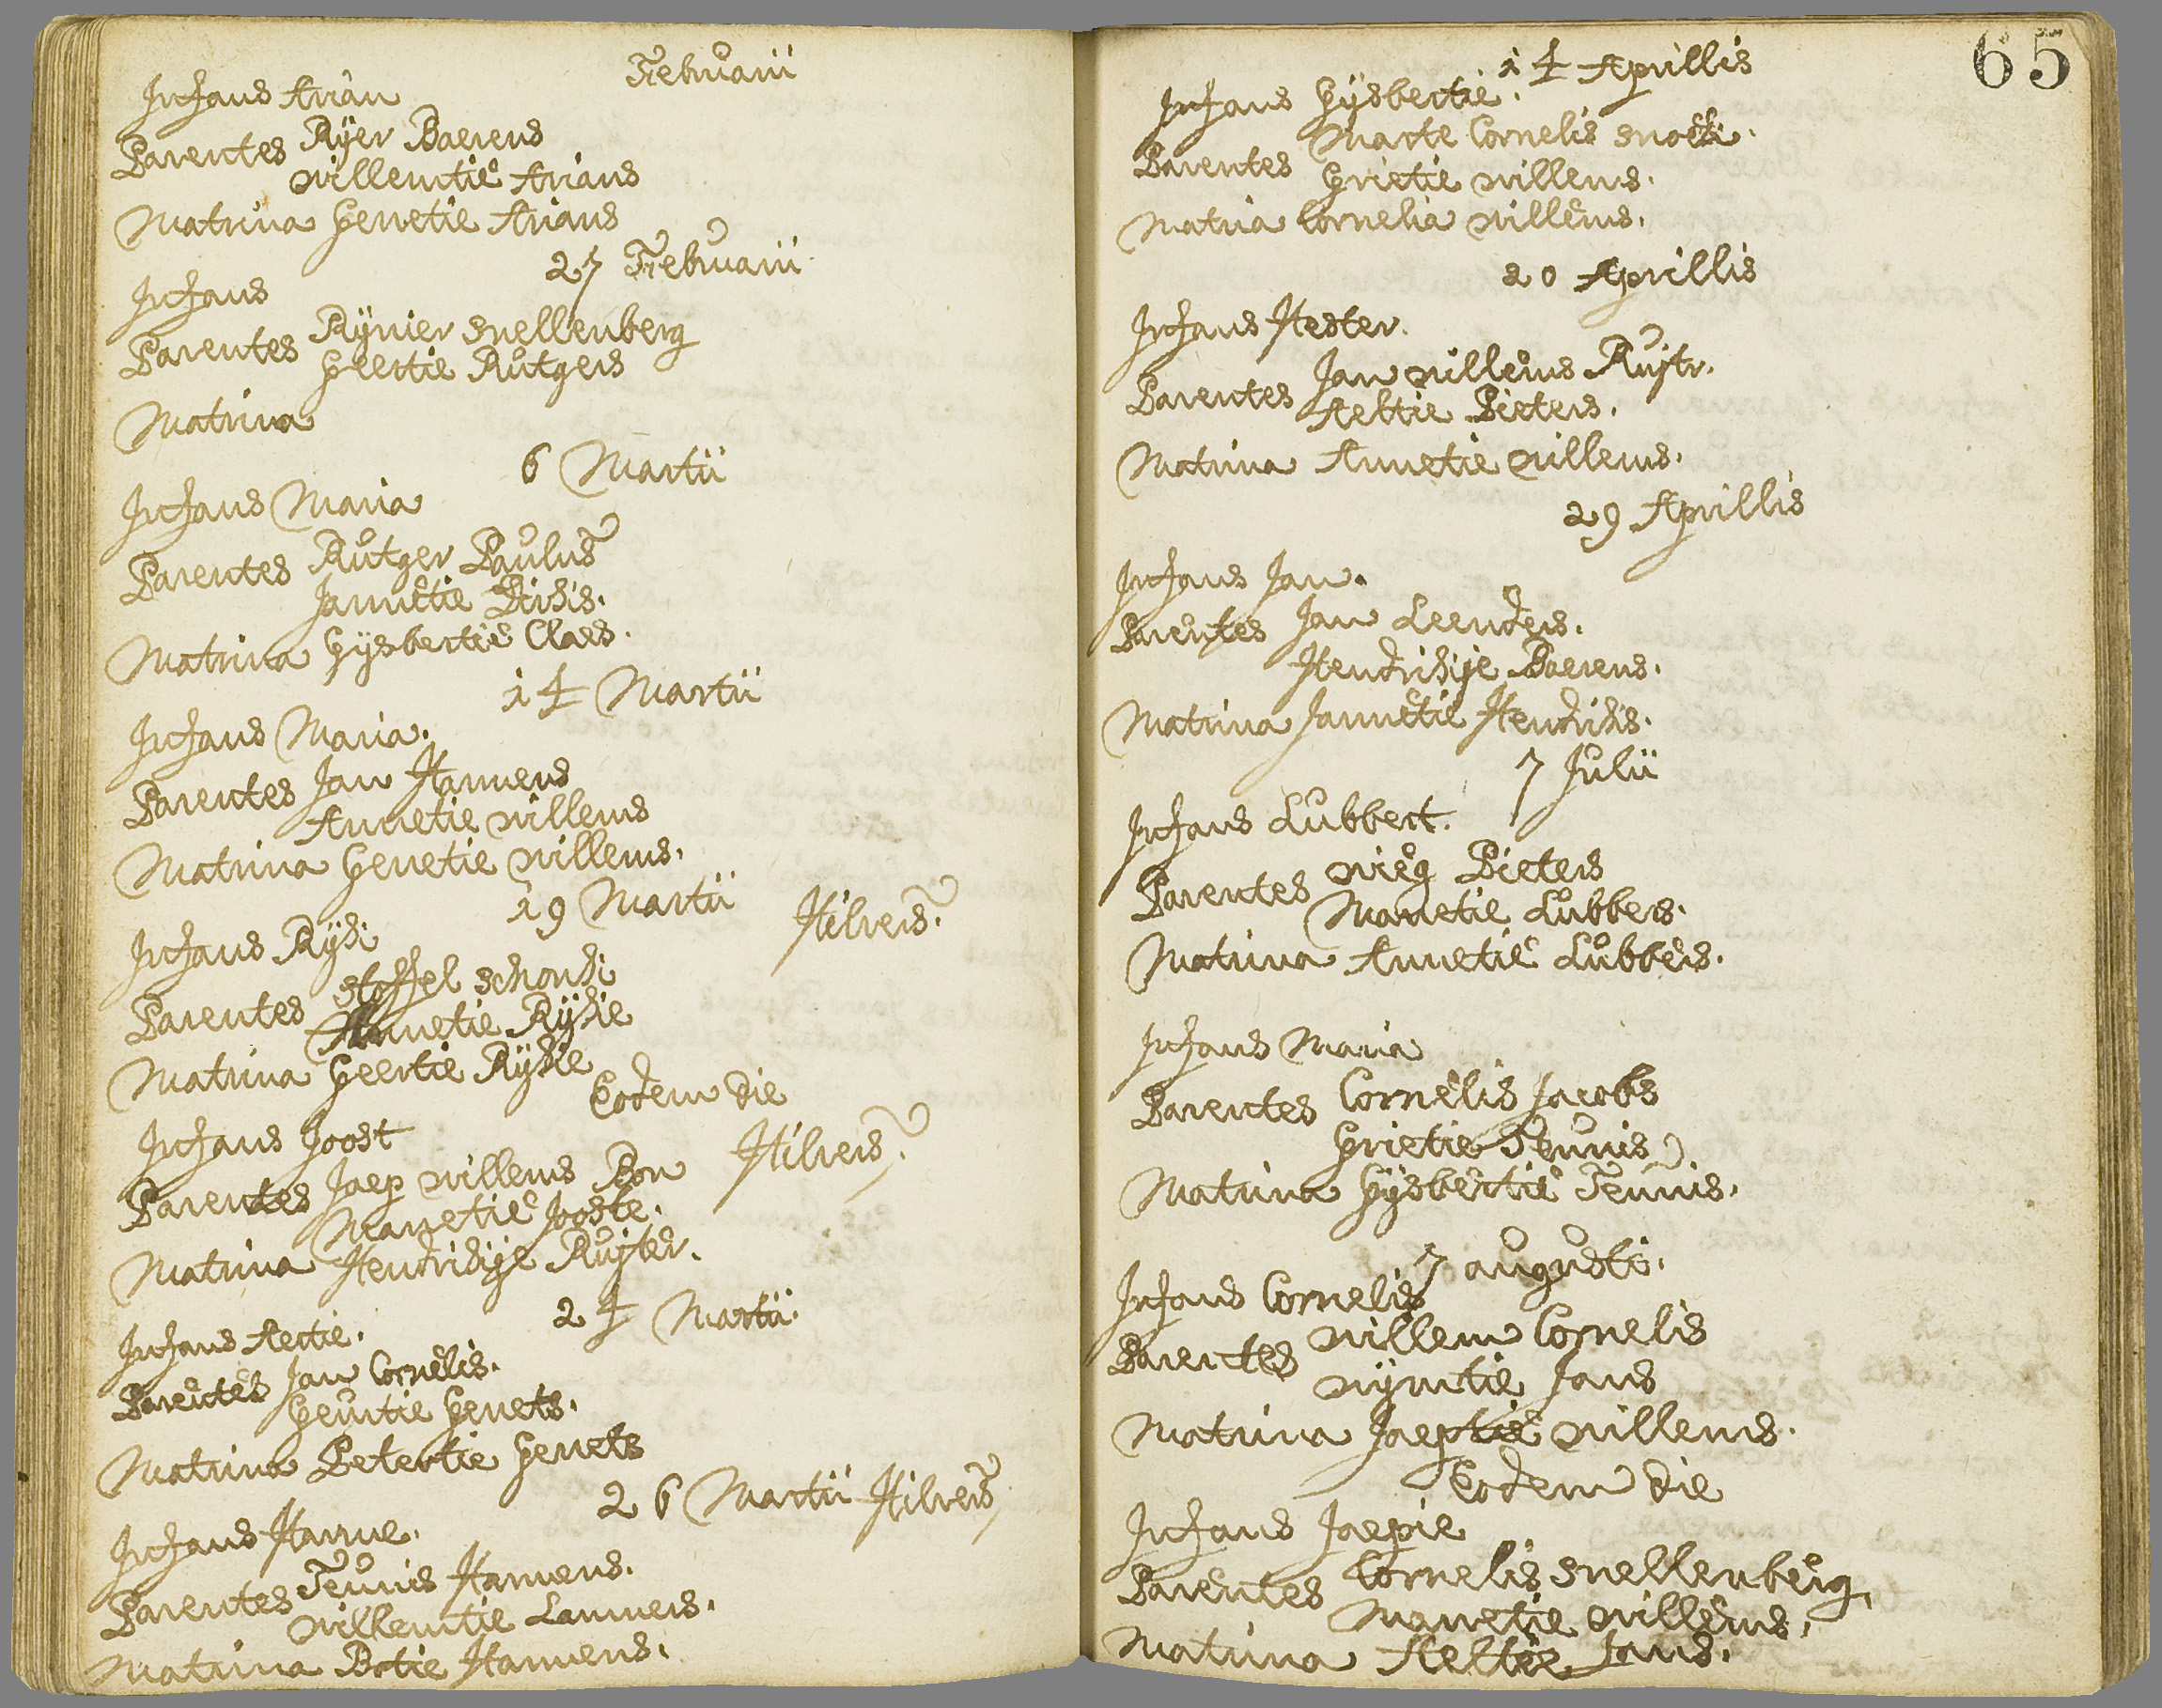 Februarii
Infans Arian
Parentes Rÿer Baerens
willemtie Arians
Matrina Gerretie Arians
27 Februarii
Infans
Parentes Rÿnier snellenberg
Geertie Rutgers
Matrina
6 Martii
Infans Maria
Parentes Rutger Paulus
Jannetie Dirkis.
Matrina Gÿsbertie Claes.
14 Martii
Infans Maria.
Parentes Jan Harmens
Annetie willems
Matrina Gerretie willems.
19 Martii Hilvers.
Infans Rÿk
Parentes stoffel schonk
Annetie Rÿkie
Matrina Geertie Rÿkie
Eodem die
Infans Joost
Parentes Jaep willems Ron Hilvers.
Marretie Jooste.
Matrina Hendrikije Ruijter.
24 Martii
Infans Aertie.
Parentes Jan Cornelis.
Geurtie Gerrets.
Matrina Petertie Gerrets
26 Martii Hilvers
Infans Harme.
Parentes Teunis Harmens.
willemtie Lammers.
Matrina Botie Harmens.
65
14 Aprillis
Infans Gÿsbertie.
Marte Cornelis snoek.
Parentes
Grietie willems.
Matria Cornelia willems.
20 Aprillis
Infans Hester.
Parentes Jan willems Rujtr.
Aeltie Pieters.
Matrina Annetie willems.
29 Aprillis
Infans Jan.
Parentes Jan Leenders.
Hendrikije Baerens.
Matrina Jannetie Hendriks.
7 Julii
Infans Lubbert.
Parentes wieg Pieters
Marretie Lubbers.
Matrina Annetie Lubbers.
Infans Maria
Parentes Cornelis Jacobs
Grietie Teunis
Matrina Gÿsbertie Teunis.
7 augusti.
Infans Cornelis
Parentes willem Cornelis
wÿmtie Jans
Matrina Jaeptie willems.
Eodem die
Infans Jaepie
Parentes Cornelis snellenberg,
Marretie willems.
Matrina Aeltie Jans.